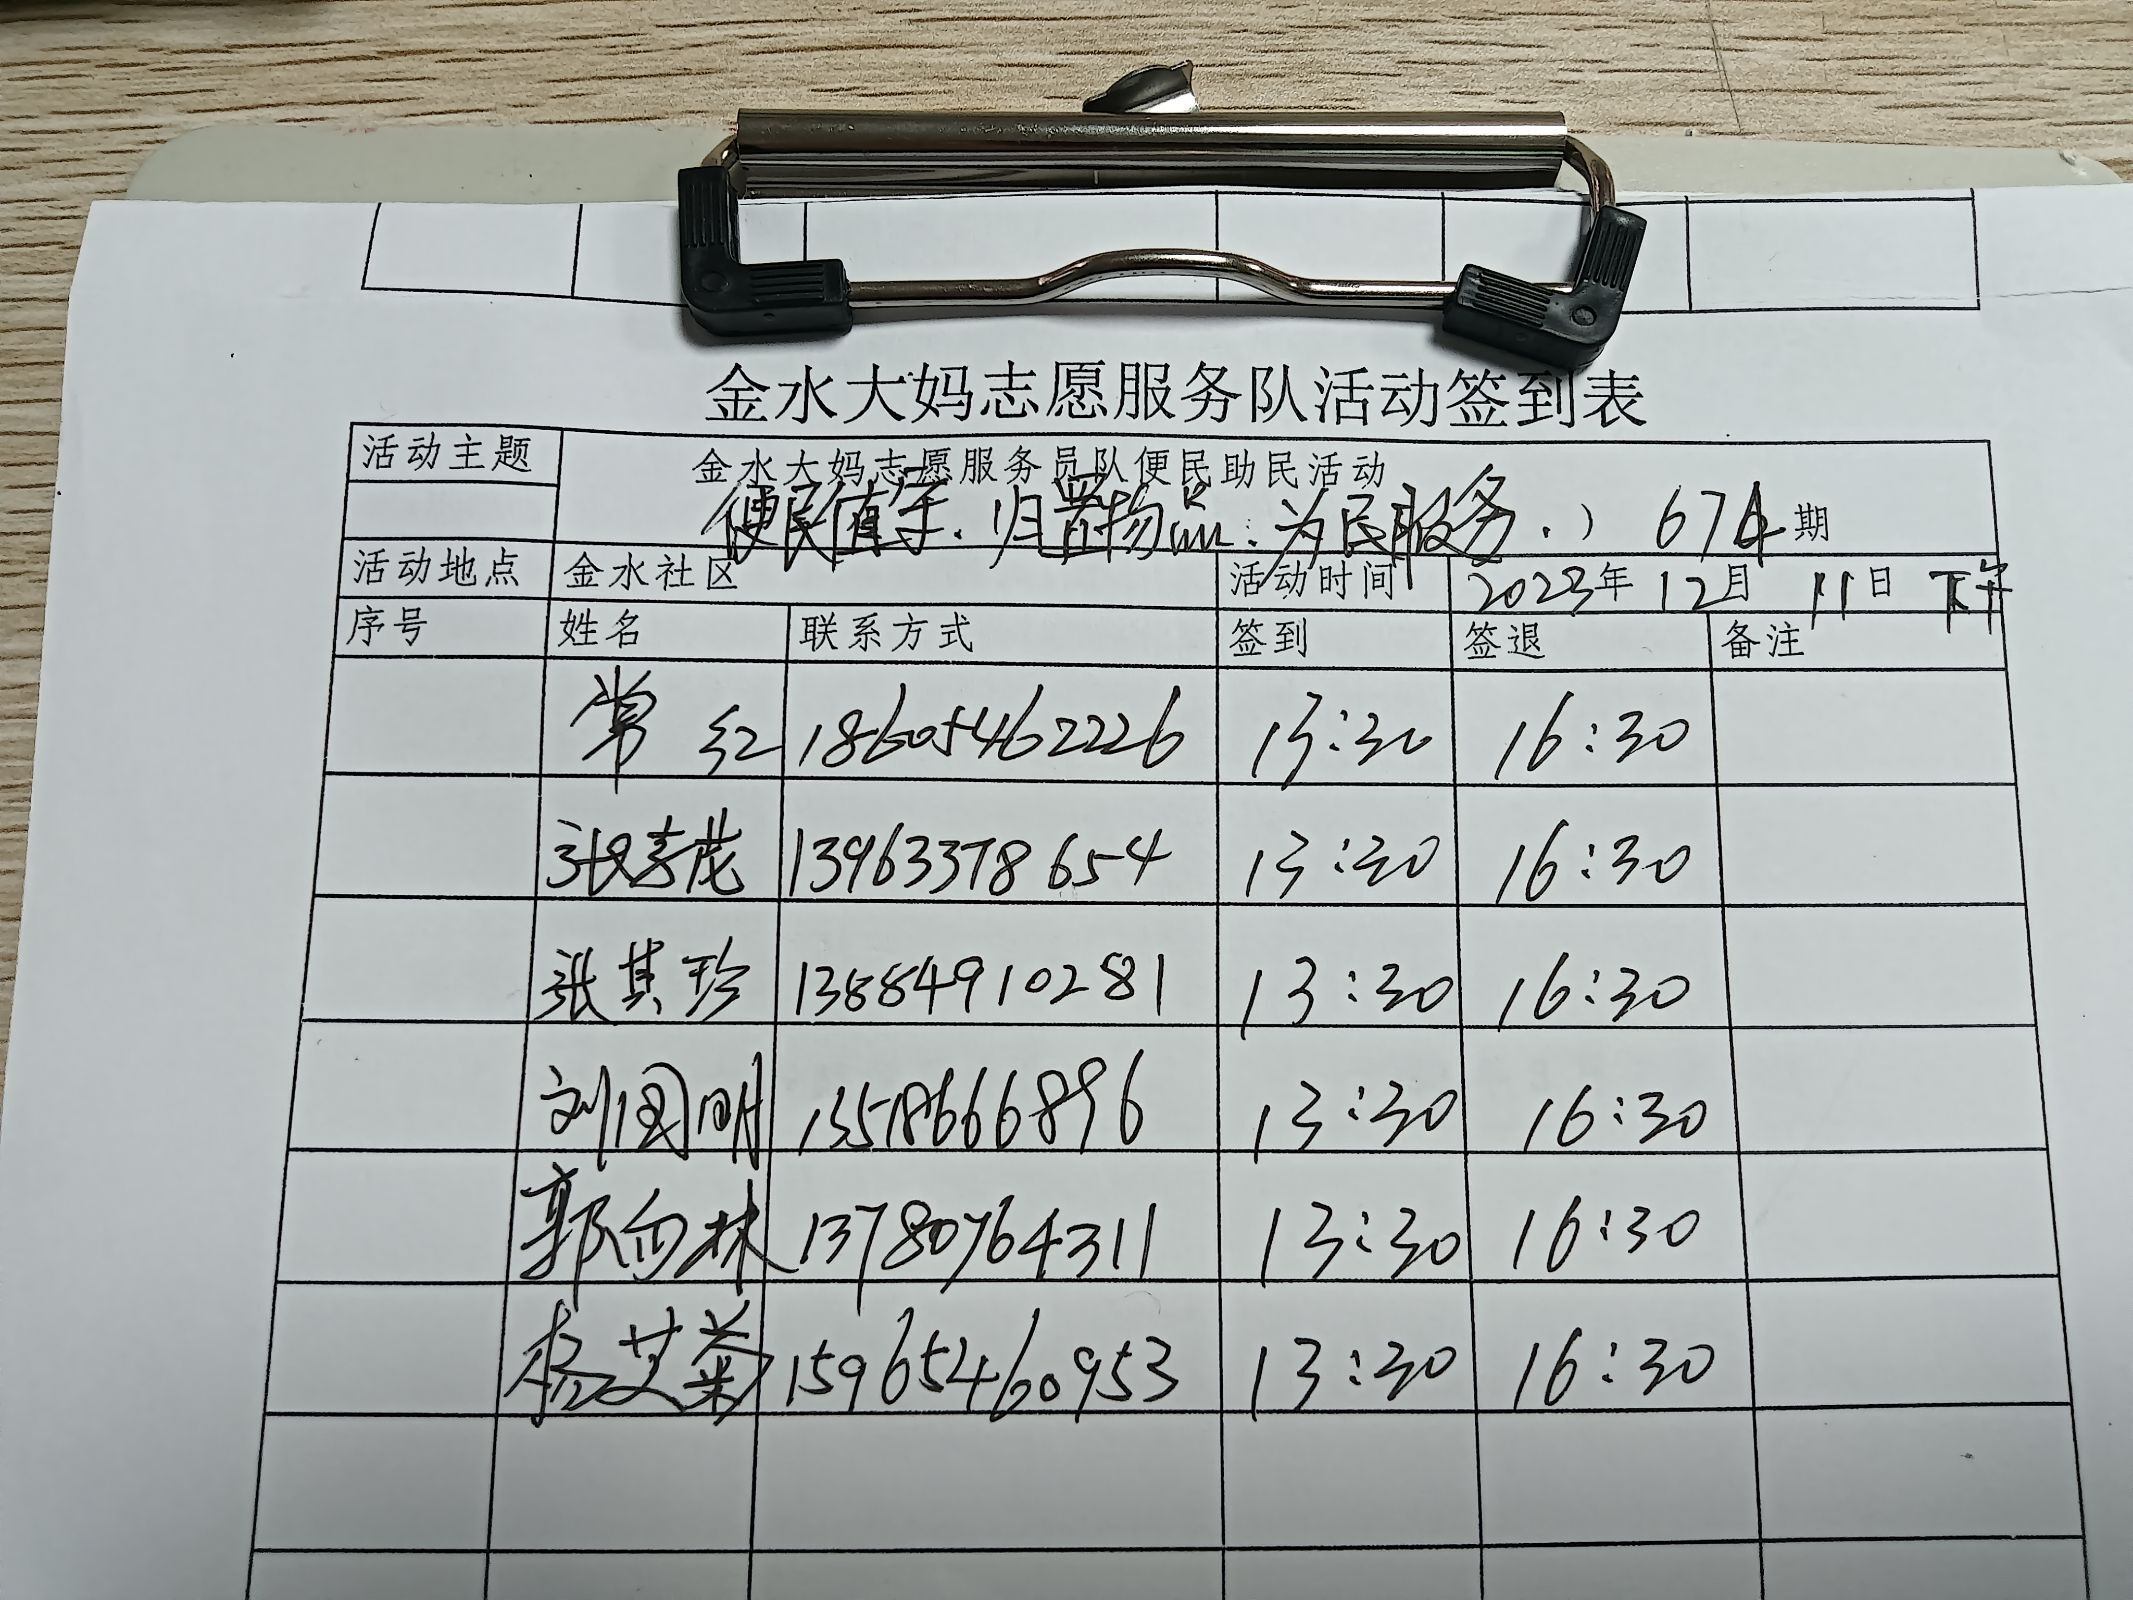 金水大妈志愿服务队活动签到表
活动主题 金水大妈志愿服务员队便民助民活动
便民值守.归置物品:为民服务.） 674期
活动地点 金水社区 活动时间 2023年 12月 11日 下午
序号 姓名 联系方式 签到 签退 备注
常红 18605462226 13:30 16:30
张孝茂 13963378654 13:30 16:30
张其珍 13884910281 13:30 16:30
刘国明 13518666896 13:30 16:30
郭向林 13780764311 13:30 16:30
杨艾菊 15965460953 13:30 16:30